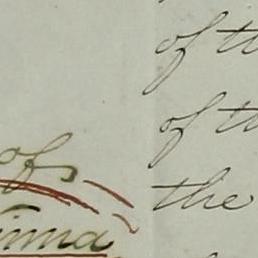 of th
of th
of
the
inna